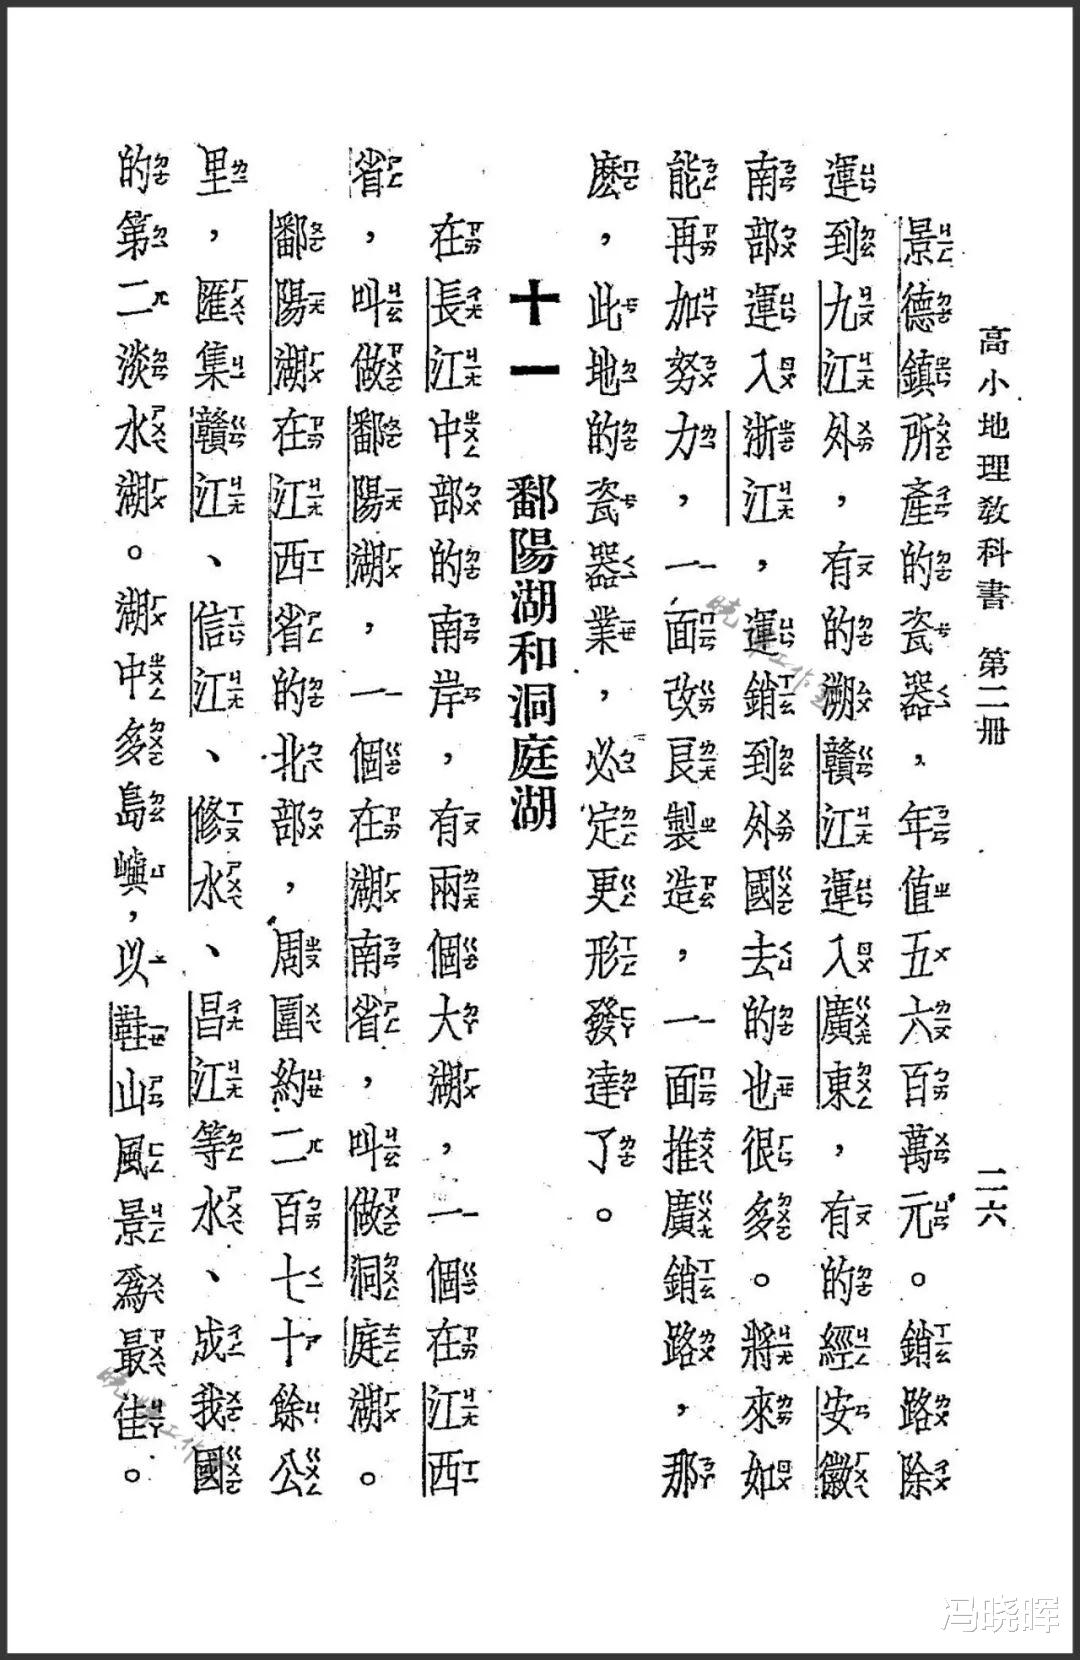 高小地理教科書　第二册　二六
景德鎮所產的瓷器，年值五六百萬元。銷路除
運到九江外，有的溯贛江運入廣東，有的經安徽
南部運入浙江，運銷到外國去的也很多。將來如
能再加努力，一面改良製造，一面推廣銷路，那
麽，此地的瓷器業，必定更形發達了。
十一　鄱陽湖和洞庭湖
在長江中部的南岸，有兩個大湖，一個在江西
省，叫做鄱陽湖，一個在湖南省，叫做洞庭湖。
鄱陽湖在江西省的北部，周圍約二百七十餘公
里，匯集贛江、信江、修水、昌江等水、成我國
的第二淡水湖。湖中多島嶼，以鞋山風景爲最佳。
冯晓晖